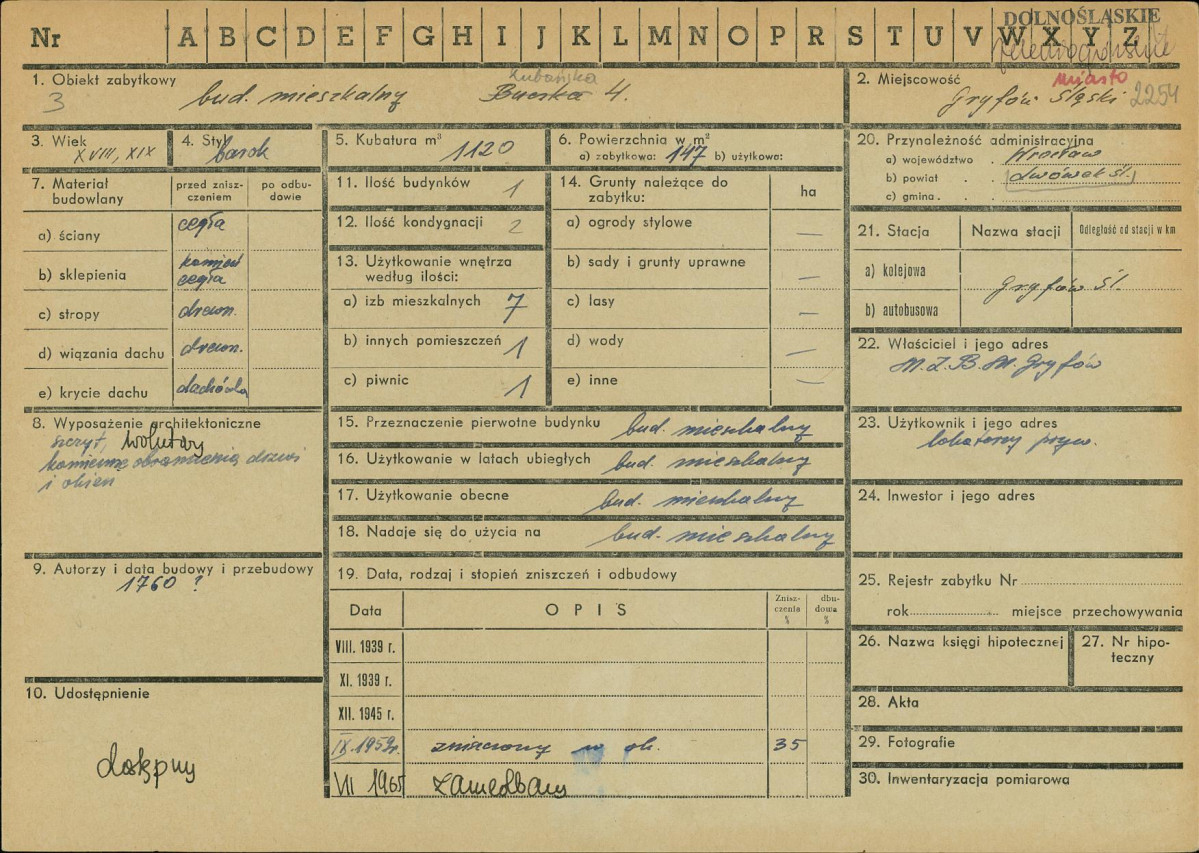 DOLNOŚLĄSKIE
Nr A B C D E F G H I J K L M N O P R S T U V W X Y Z
1. Obiekt zabytkowy
3 bud. mieszkalny Lubańska Buczka 4.
2. Miejscowość miasto
Gryfów Śląski 2254
3. Wiek
XVIII, XIX
4. Styl
barok
5. Kubatura m³
1120
6. Powierzchnia w m²
a) zabytkowa: 147 b) użytkowa:
20. Przynależność administracyjna
a) województwo . Wrocław
b) powiat . . Lwówek Śl.
c) gmina . . .
7. Materiał budowlany
przed znisz-
czeniem
po odbu-
dowie
a) ściany cegła
b) sklepienia kamień cegła
c) stropy drewn.
d) wiązania dachu drewn.
e) krycie dachu dachówka
11. Ilość budynków 1
12. Ilość kondygnacji 2
13. Użytkowanie wnętrza
według ilości:
a) izb mieszkalnych 7
b) innych pomieszczeń 1
c) piwnic 1
14. Grunty należące do
zabytku:
ha
a) ogrody stylowe —
b) sady i grunty uprawne —
c) lasy —
d) wody —
e) inne —
21. Stacja Nazwa stacji Odległość od stacji w km
a) kolejowa
b) autobusowa
Gryfów Śl.
22. Właściciel i jego adres
M.Z.B.M. Gryfów
8. Wyposażenie architektoniczne
szczyt, wolutowy
kamienne obramienia drzwi
i okien
15. Przeznaczenie pierwotne budynku bud. mieszkalny
16. Użytkowanie w latach ubiegłych bud. mieszkalny
17. Użytkowanie obecne bud. mieszkalny
18. Nadaje się do użycia na bud. mieszkalny
23. Użytkownik i jego adres
lokatorzy pryw.
24. Inwestor i jego adres
9. Autorzy i data budowy i przebudowy
1760 ?
19. Data, rodzaj i stopień zniszczeń i odbudowy
Data OPIS
Znisz-
czenia
%
dbu-
dowa
%
VIII. 1939 r.
XI. 1939 r.
XII. 1945 r.
IX. 1959r. zniszczony w ok. 35
VII 1965 zaniedbany
25. Rejestr zabytku Nr
rok miejsce przechowywania
26. Nazwa księgi hipotecznej
27. Nr hipo-
teczny
10. Udostępnienie
dostępny
28. Akta
29. Fotografie
30. Inwentaryzacja pomiarowa